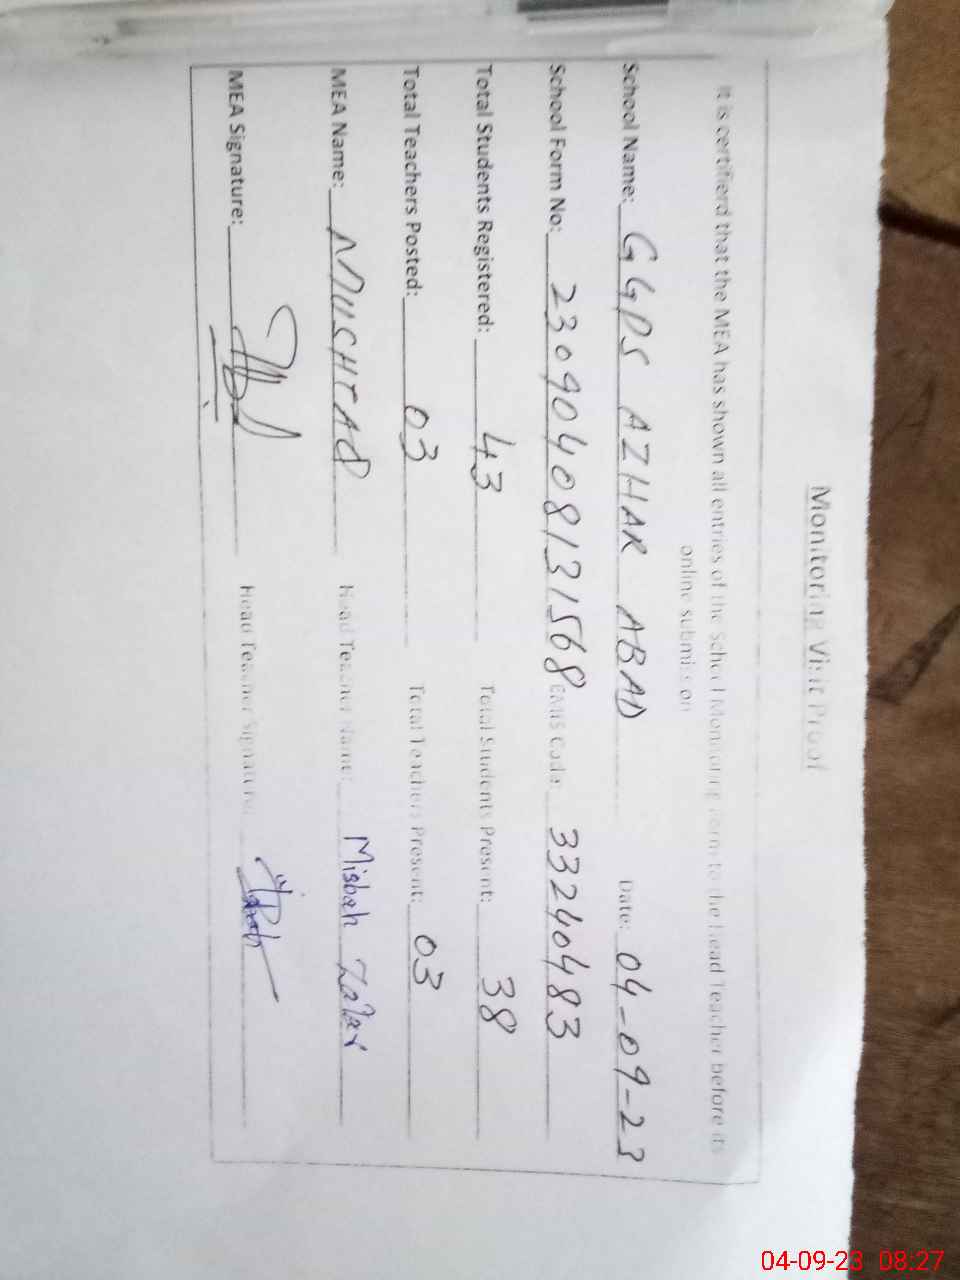 Monitoring Visit Proof
It is certifierd that the MEA has shown all entries of the School Monitoring Form to the Head Teacher before its
online submission
School Name: GGPS AZHAR ABAD Date: 04-09-23
School Form No: 23090408131568 EMIS Code: 33240483
Total Students Registered: 43 Total Students Present: 38
Total Teachers Posted: 03 Total Teachers Present: 03
MEA Name: MUSHTAQ Head Teacher Name: Misbah Zafar
MEA Signature: Head Teacher Signature:
04-09-23 08:27